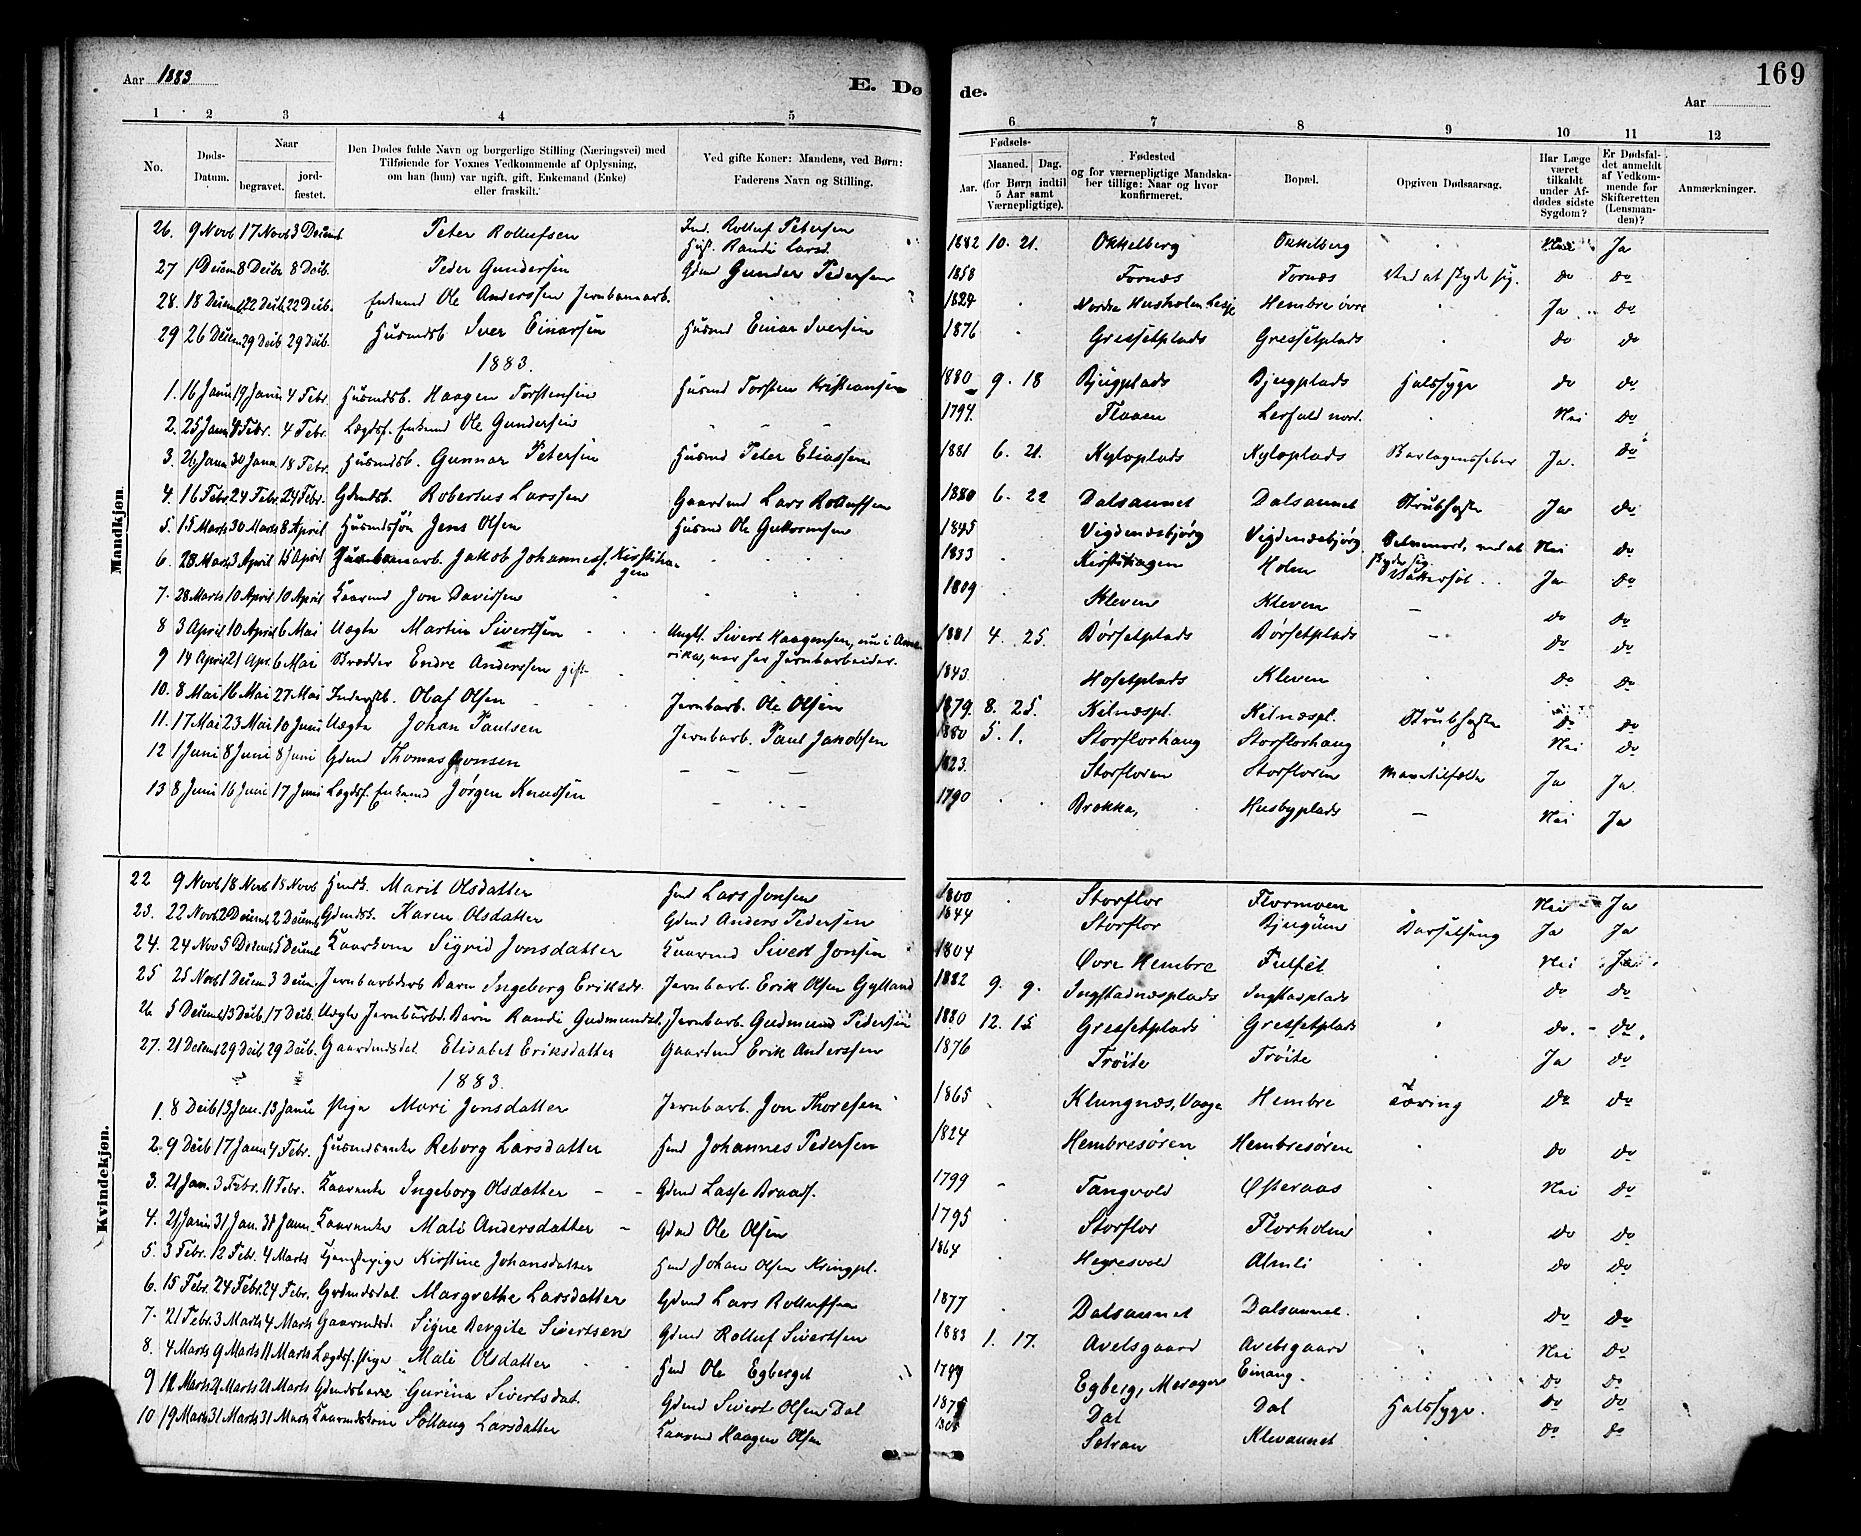 Aar 1883
E. Dø de.
169
Aar
1 2 3 4 5 6 7 8 9 10 11 12
No.
Døds-Datum.
Naar
begravet.
jord-fæstet.
Den Dødes fulde Navn og borgerlige Stilling (Næringsvei) med
Tilføiende for Voxnes Vedkommende af Oplysning,
om han (hun) var ugift, gift, Enkemand (Enke)
eller fraskilt.
Ved gifte Koner: Mandens, ved Børn:
Faderens Navn og Stilling.
Fødsels-
Aar.
Maaned. Dag.
(for Børn indtil
5 Aar samt
Værnepligtige).
Fødested
og for værnepligtige Mandska-
ber tillige: Naar og hvor
konfirmeret.
Bopæl.
Opgiven Dødsaarsag.
Har Læge
været
tilkaldt
under Af-
dødes sidste
Sygdom?
Er Dødsfal-
det anmeldt
af Vedkom-
mende for
Skifteretten
(Lensman-
den)?
Anmærkninger.
Mandkjøn.
26. 9 Novb 17 Novb 3 Decemb. Peter Rollufsen Ind. Rolluf Petersen Randi Larsd. 1882 10. 21. Okkelberg Okkelberg Nei Ja
27 1 Decem 8 Decbr 8 Decb. Peder Gundersen Gdmd Gunder Pedersen 1858 Fornæs Fornæs Ved at skyde sig. do do
28. 18 Decemb 22 Decb 22 Decb. Enkemd Ole Anderssen Jernbanearb. 1824 Nordre Husholm Hembre övre Ja do
29 26 Decem 29 Decb 29 Decb. Husmdsb. Iver Einarsen Husmd Einar Iversen 1876 Gressetplads Gressetplads do do
1883.
1. 16 Janu 19 Janu 4 Febr. Husmdsb. Haagen Torstensen Husmd Torsten Kristiansen 1880 9. 18 Bjugplads Bjugplads Halssyge do do
2. 25 Jan 4 Febr. 4 Febr. Lægdsl. Enkemd Ole Gundersen 1794. Flaaen Lerfald nord. Nei do
3. 26 Jan 30 Janu. 18 Febr. Husmdsb. Gunnar Petersen Husmd Peter Eliassen 1881 6. 21. Kyloplads Kyloplads Ja. do
4. 16 Febr 24 Febr. 24 Febr. Gdmdsb. Robertus Larssen Gaardmd Lars Rolluffsen 1880 6. 22 Dalsaunet Dalsaunet Strubhoste Ja do
5. 15 Marts 30 Marts 8 April Husmdssøn Jens Olsen Husmd Ole Guttormsen 1845 Vigdenæsbjörg Vigdenæsbjörg Selvmord, ved at skyde sig Nei do
6. 28 Marts 3 April 15 April Jernbanearb. Jakob Johanness. Kirstihagen 1833 Kirstihagen Holm Ja do
7. 28 Marts 10 April 10 April Kaarmd Jon Davidsen 1809 Kleven Kleven — do do
8 3 April 10 April 6 Mai Uægte Martin Sivertsen Ungk. Sivert Haagensen, nu i Amerika, var før Jernbarbeider. 1881 4. 25. Börsetplads Börsetplads — do do
9 14 April 21 Apr. 6 Mai Skrædder Endre Anderssen gift 1843. Hosetplads Kleven do do
10. 8 Mai 16 Mai 27 Mai Inderstb. Olaf Olsen Jernbarb. Ole Olsen 1879. 8. 25. Kilnæspl. Kilnæspl. Strubhoste do do
11. 17 Mai 23 Mai 10 Juni Uægte Johan Paulsen Jernbarb. Paul Jakobsen 1880 5. 1. Storflorhaug Storflorhaug Nei do
12 1 Juni 8 Juni 8 Juni Gdmd Thomas Jonsen — — — 1823. Storfloren Storfloren Mavetilfælde Ja Ja
13 8 Juni 16 Juni 17 Juni Lægdsl. Enkemd Jørgen Knudsen 1790 Brekka, Husbyplads — Nei Ja
Kvindekjøn.
22 9 Novb 18 Novb 18 Novb Marit Olsdatter Lars Jonsen 1800 Storflor Flormoen Nei Ja
23. 22 Novb 2 Decemb 2 Decemb Karen Olsdatter Gdmd Anders Pedersen 1844 Storflor Barselseng Ja Ja
24. 24 Nov 5 Decemb 5 Decemb Kaarkone Sigrid Jonsdatter Kaarmd Sivert Jonsen 1804 Øvre Hembre Fulset Nei Ja
25 25 Novb 1 Decem 3 Decem. Jernbarbderb Barn Ingeborg Eriksdr. Jernbarb. Erik Olsen Gylland 1882 9. 9. Ingstadnæsplads Ingstaplads do do
26 5 Decemb 13 Decb. 17 Decb. Uægte Jernbarbd. Barn Randi Gudmundsd. Jernbarb. Gudmund Pedersen 1880 12. 15 Gressetplads Gressetplads do. do.
27. 21 Decemb 29 Decb 29 Decb. Gaardmdsdat. Elisabet Eriksdatter Gaardmd Erik Anderssen 1876 Tröite Tröite Ja do
1883.
1. 8 Decb 13 Jan. 13 Janu Pige Mari Jonsdatter Jernbarb. Jon Thoresen 1865 Klungnæs, Vaage Hembre Tæring do do
2. 9 Decb 17 Janu 4 Febr. Husmdsenke Reborg Larsdatter Johannes Pedersen 1824 Hembresøren Hembresøren do do
3. 21 Jan. 3 Febr. 11 Febr. Kaarenke Ingeborg Olsdatter — — Gdmd Lasse Braads. 1799 Tangvold Østeraas Nei do
4. 21 Janu 31 Jan. 31 Janu. Kaarenke Mali Andersdatter — Gdmd Ole Olsen 1795 Storflor Florholm do do
5. 3 Febr. 12 Febr. 4 Marts Tjenestepige Kirstine Johansdatter Johan Olsen Kringpl. 1864 Hegresvold Almli do do
6. 15 Febr. 24 Febr. 24 Febr. Gdmdsdat. Margrethe Larsdatter Gdmd Lars Rolluffsen 1877 Dalsaunet Dalsaunet. do do
7. 21 Febr. 3 Marts 4 Marts Gaarmdsd. Signe Bergite Sivertsen Gdmd Rolluf Sivertsen 1883 1. 17. Avelsgaard Avelsgaard Nei do
8. 4 Marts 9 Marts 11 Marts Lægdsl. Pige Mali Olsdatter Ole Egberget Egberg, Merager Einang. do do
9 Marts 21 Marts 21 Marts Gurina Sivertsdat. Gdmd Sivert Olsen Dal Dal Dal Halssyge. do do
10 19 Marts 31 Marts 31 Marts Kaarmdskone Larsdatter Kaarmd Haagen Olsen Klevaunet do do